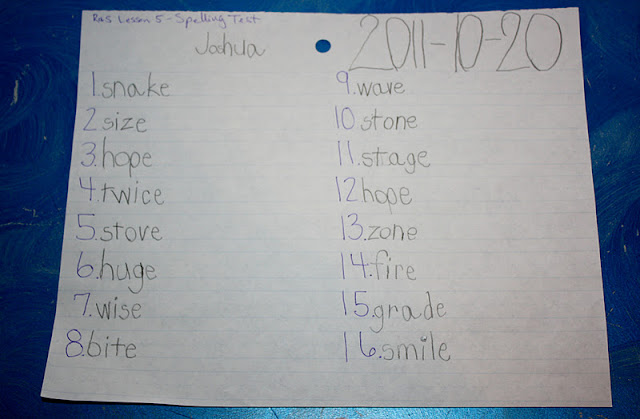 R&S Lesson 5 - Spelling Test
Joshua
2011-10-20
1.snake
2.size
3.hope
4.twice
5.stove
6.huge
7.wise
8.bite
9.wave
10 stone
11.stage
12 hope
13.zone
14.fire
15.grade
16.smile